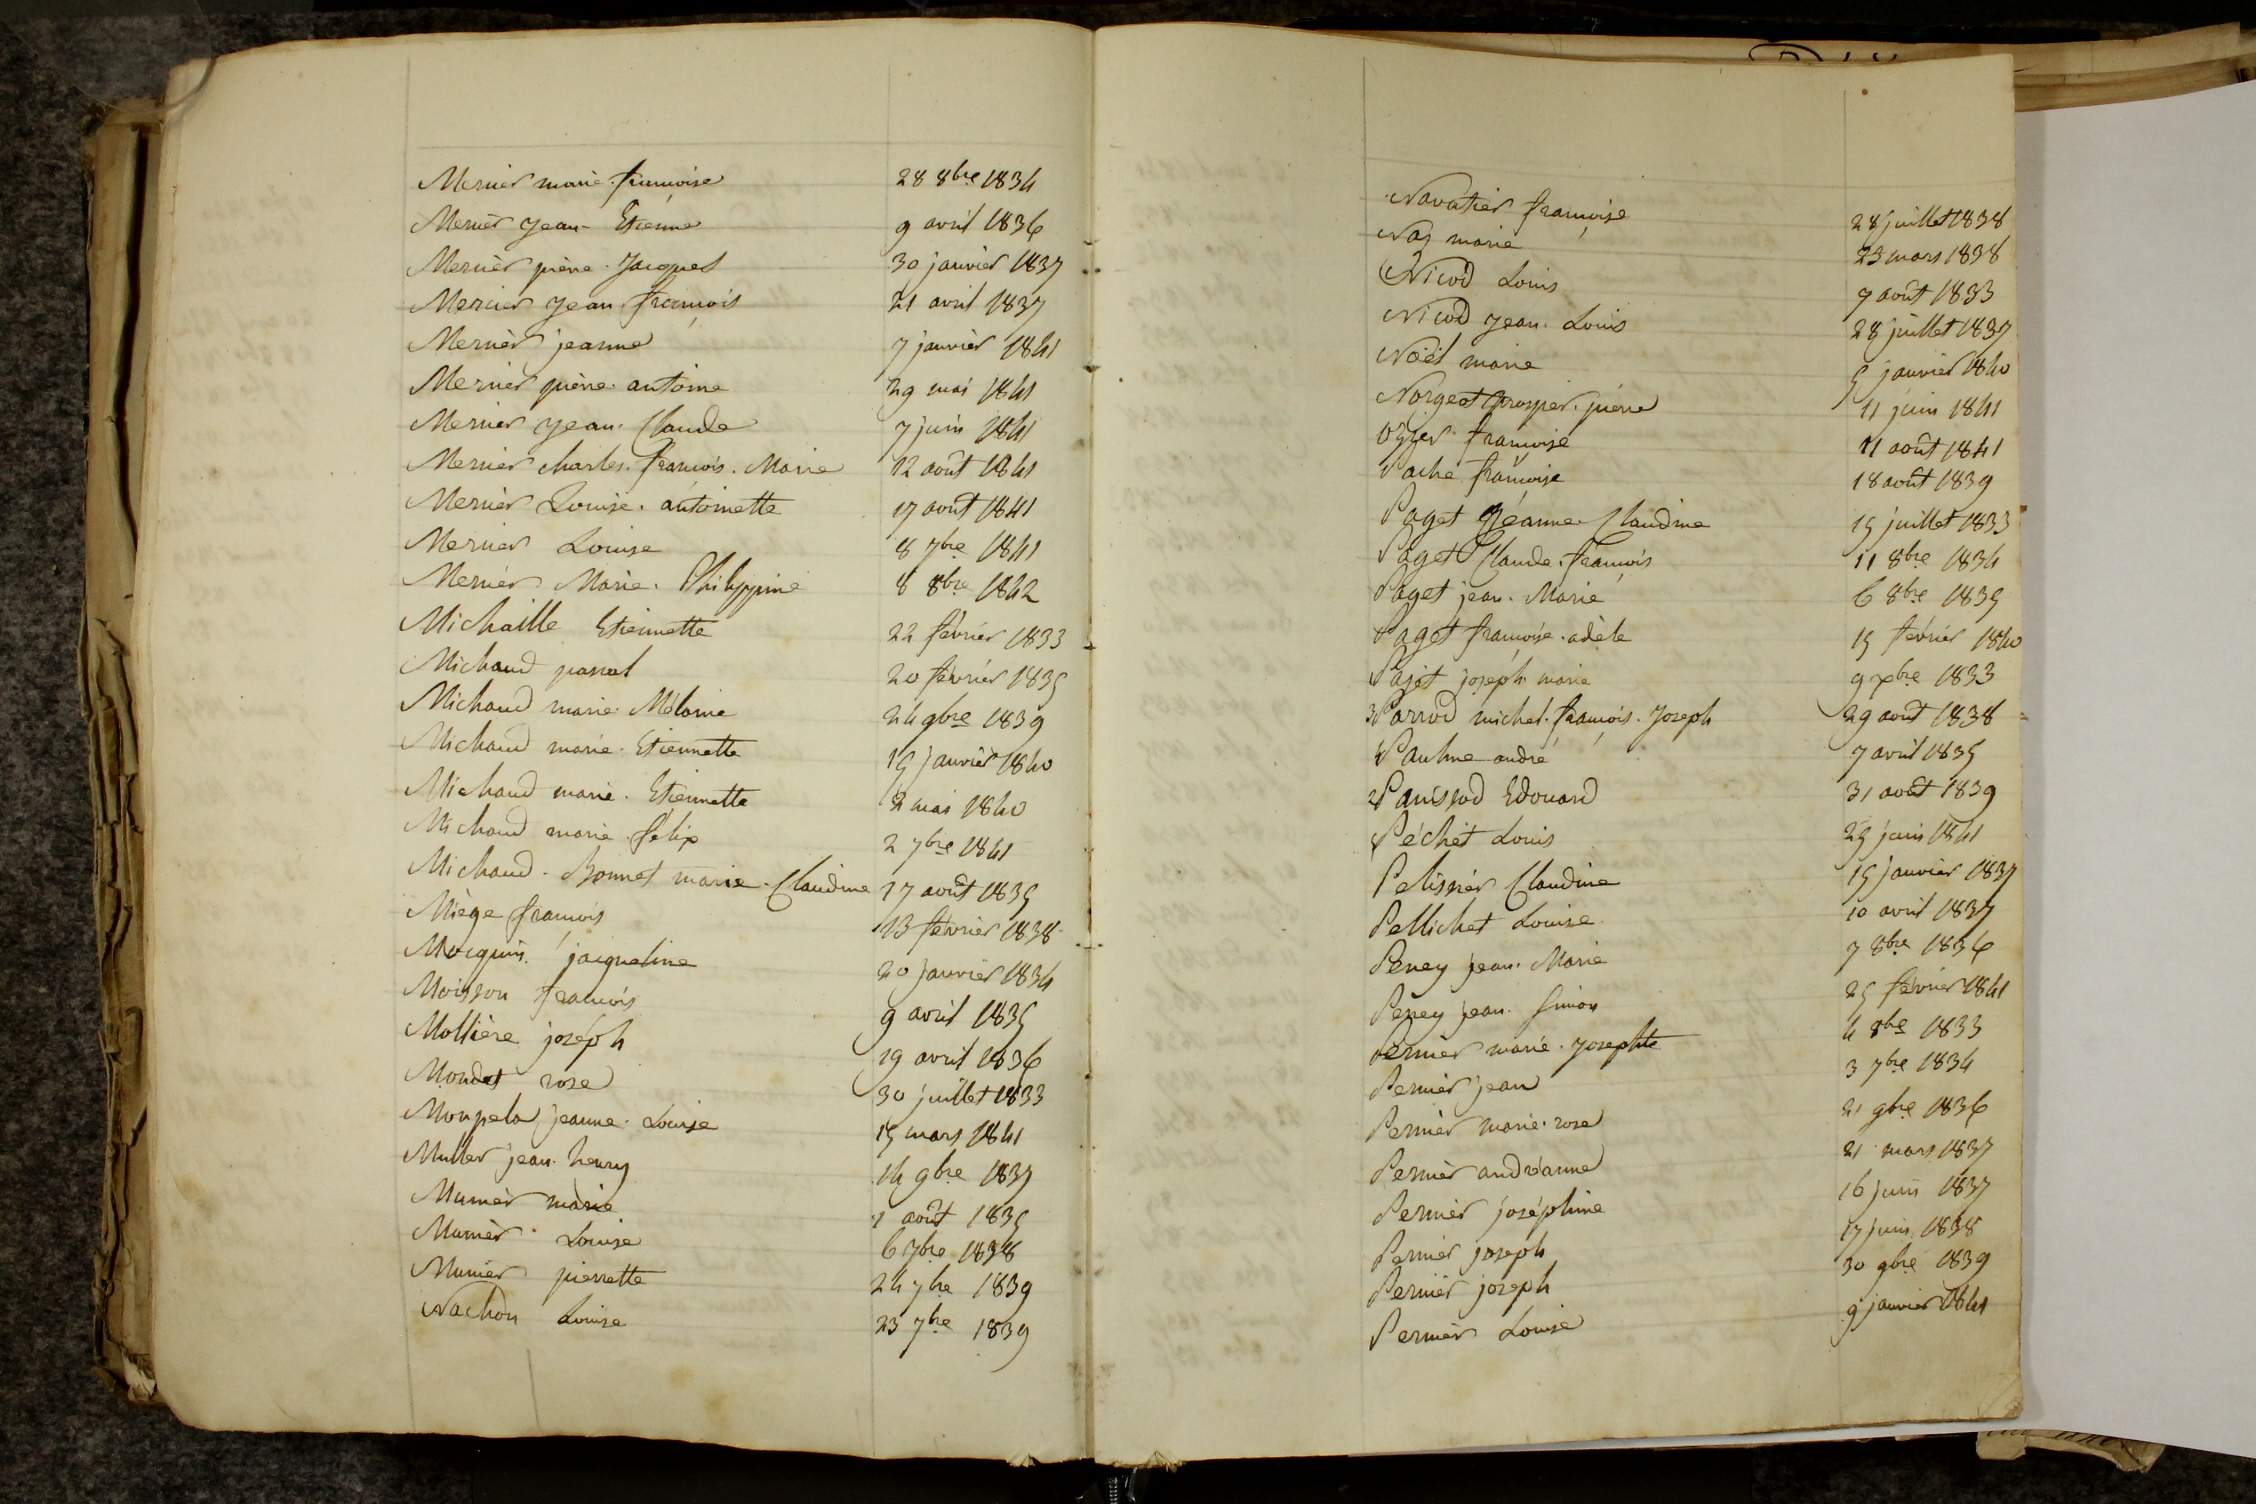 Mercier marie. françoise 28 8bre 1834
Mercier Jean. Etienne 9 avril 1836
Mercier pierre. Jacques 30 janvier 1837
Mercier Jean françois 21 avril 1837
Mercier jeanne 7 janvier 1841
Mercier pierre. antoine 29 mai 1841
Mercier Jean. Claude 7 juin 1841
Mercier charles. françois. Marie 12 août 1841
Mercier Louise. antoinette 17 août 1841
Mercier Louise 8 7bre 1841
Mercier Marie. Philippine 8 8bre 1842
Michaille Etiennette 22 février 1833
Michaud pascal 20 février 1835
Michaud marie. Mélanie 24 9bre 1839
Michaud marie. Etiennette 15 janvier 1840
Michaud marie. Etiennette 2 mai 1840
Michaud marie. félix 2 7bre 1841
Michaud. Bonnet marie. Claudine 17 août 1835
Miège françois 13 février 1838
Mocquin jacqueline 20 janvier 1834
Moisson françois 9 avril 1835
Mollière joséph 19 avril 1836
Mondet rose 30 juillet 1833
Monpela jeanne. Louise 15 mars 1841
Muller jean. henry 14 9bre 1837
Munier marie 1 août 1835
Munier Louise 6 7bre 1838
Munier pierrette 24 7bre 1839
Nachon Louise 23 7bre 1839
Navatier françoise 28 juillet 1838
marie 23 mars 1838
Nicod Louis 7 août 1833
Nicod Jean. Louis 28 juillet 1837
Noël marie 5 janvier 1840
Norgeot prosper. pierre 11 juin 1841
Ozier françoise 11 août 1841
Paché françoise 18 août 1839
Paget Jéanne. Claudine 15 juillet 1833
Paget Claude. françois 11 8bre 1834
Paget jean. Marie 6 8bre 1835
Paget françoise. adèle 15 février 1840
Pajet joséph marie 9 xbre 1833
3 Parrod michel. françois. Joseph 29 août 1838
1 Paulme andré 7 avril 1835
2 Panissod Edouard 31 août 1839
Péchet Louis 25 juin 1841
Pelissier Claudine 15 janvier 1837
Pellichet Louise 10 avril 1837
Peney jean. Marie 7 8bre 1836
Peney jean. Simon 25 février 1841
Pernier marie. Josephte 4 8bre 1833
Pernier jean 3 7bre 1834
Pernier marie. rose 21 9bre 1836
Pernier andréanne 21 mars 1837
Pernier joséphine 16 juin 1837
Pernier joseph 17 juin 1838
Pernier joseph 30 9bre 1839
Pernier Louise 9 janvier 1841